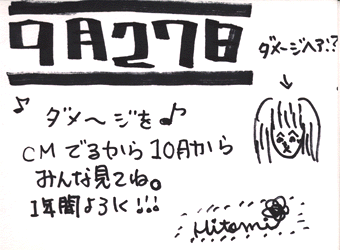 9月27日
ダメージヘア!?
♪ ダメ〜ジを♪
CMでるから10月から
みんな見てね。
1年間よろしく!!!
Hitomi